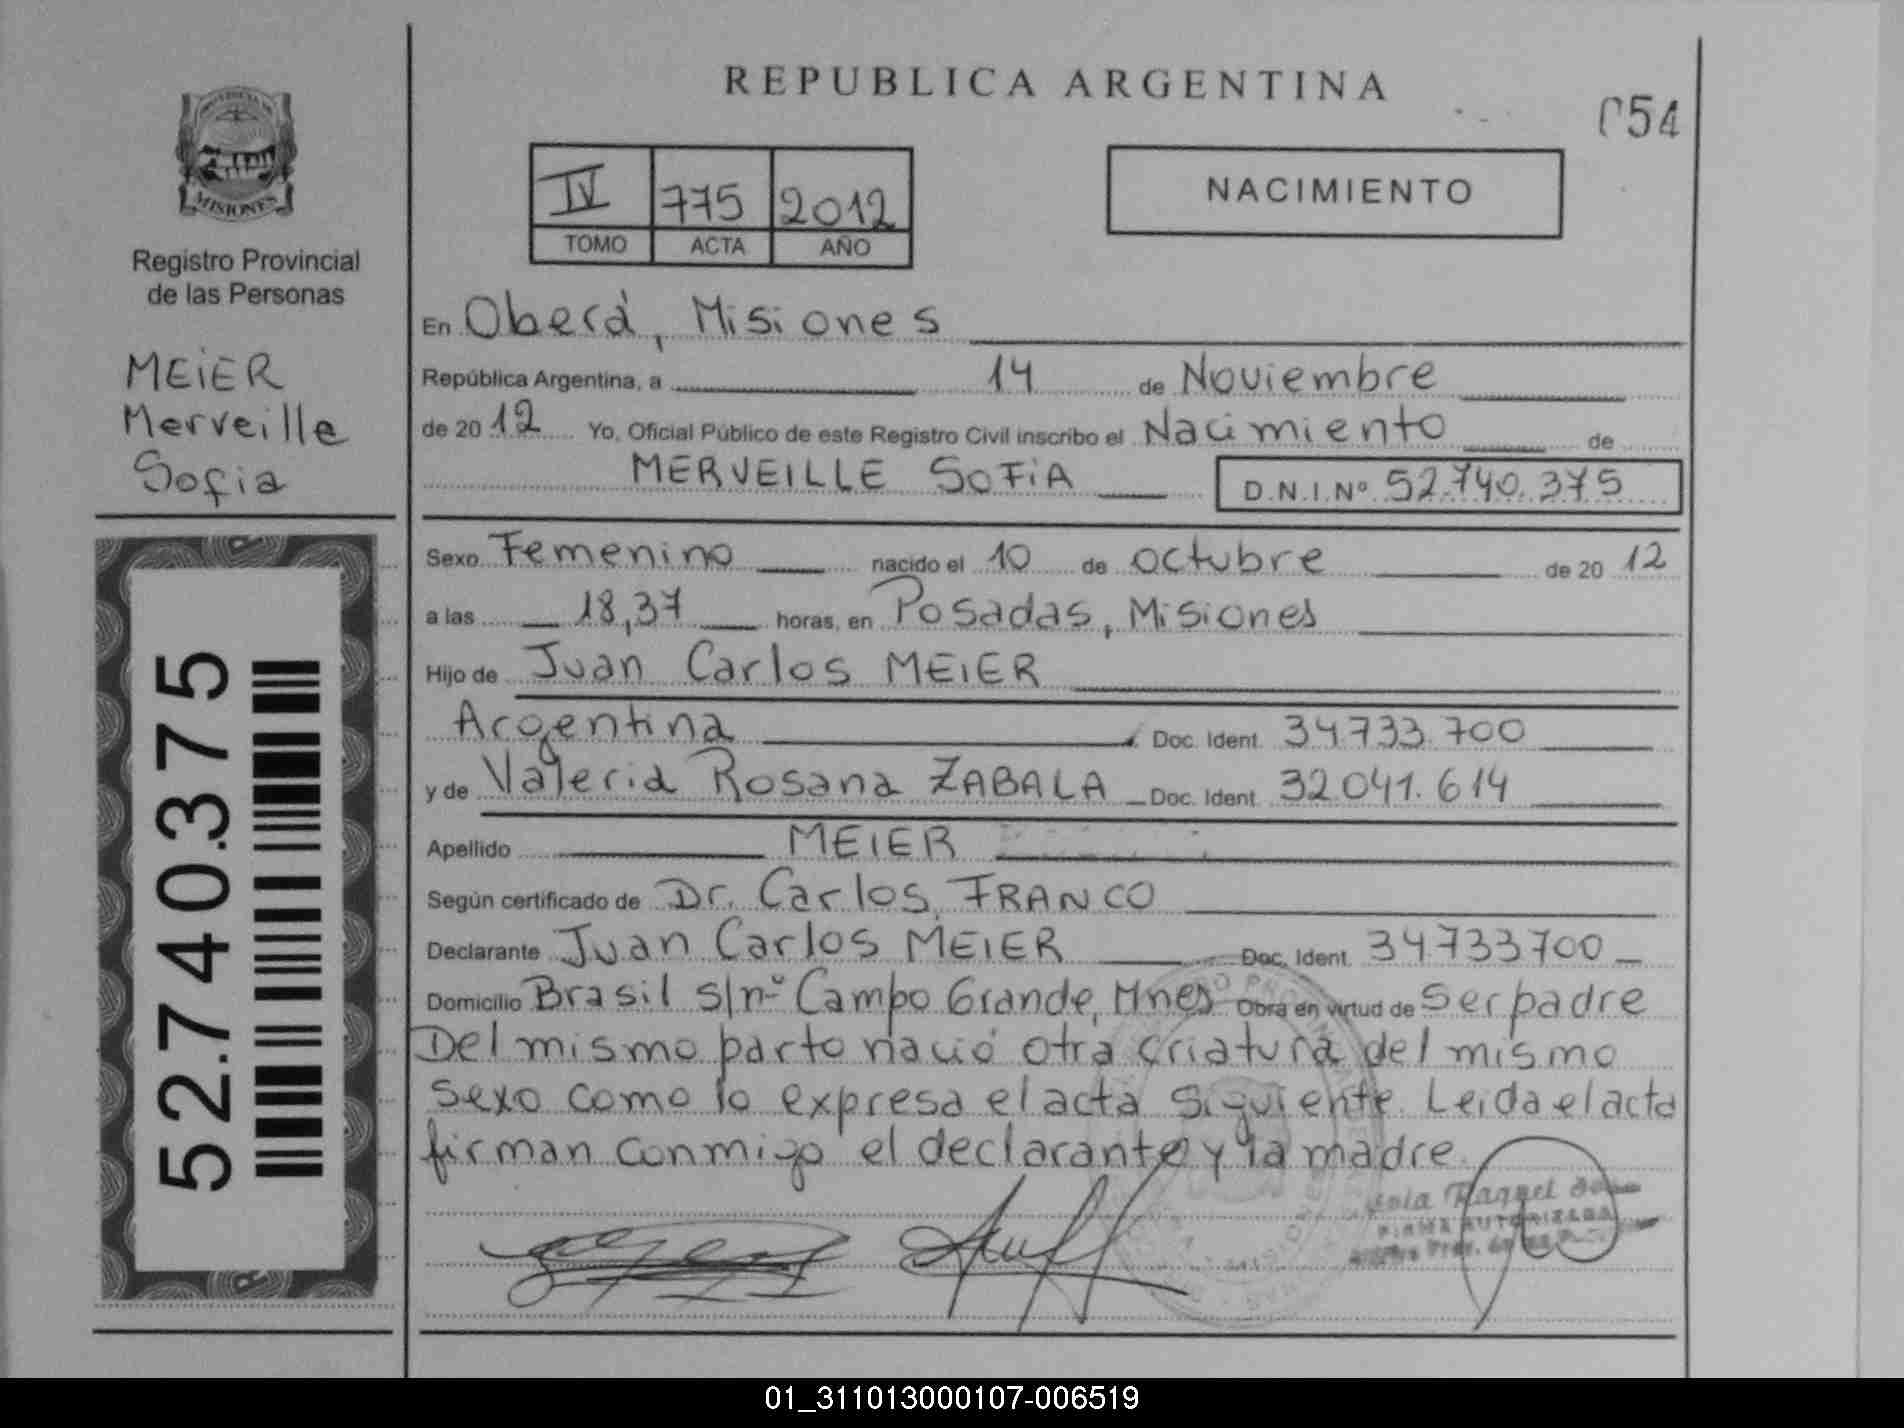 REPUBLICA ARGENTINA
054
PROVINCIA DE
MISIONES
Registro Provincial
de las Personas
MEIER
Merveille
Sofia
52.740.375
IV 775 2012
TOMO ACTA AÑO
NACIMIENTO
En Oberá, Misiones
República Argentina, a 14 de Noviembre
de 2012 Yo, Oficial Público de este Registro Civil inscribo el Nacimiento de
MERVEILLE SOFIA D.N.I.Nº 52.740.375
Sexo Femenino nacido el 10 de octubre de 20 12
a las 18,37 horas, en Posadas, Misiones
Hijo de Juan Carlos MEIER
Argentina Doc. Ident. 34.733.700
y de Valeria Rosana ZABALA Doc. Ident. 32.041.614
Apellido MEIER
Según certificado de Dr. Carlos FRANCO
Declarante Juan Carlos MEIER Doc. Ident. 34733700
Domicilio Brasil s/nº Campo Grande, Mnes Obra en virtud de Ser padre
Del mismo parto nació otra criatura del mismo
sexo como lo expresa el acta siguiente. Leida el acta
firman conmigo el declarante y la madre.
Raquel
FIRMA AUTORIZADA
01_311013000107-006519